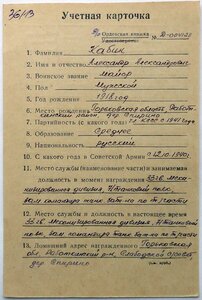 36/13
Учетная карточка
Орденская книжка
Удостоверение № Д-004128
1. Фамилия Хабик
2. Имя и отчество Александр Александрович
3. Воинское звание майор
4. Пол Мужской
5. Год рождения 1918 год
6. Место рождения Горьковская область, Работ-
кинский район, дер. Спирино
7. Партийность (с какого года) чл. КПСС с 1941 года
8. Образование Среднее
9. Национальность русский
10. С какого года в Советской Армии с 12.10.1940г.
11. Место службы (наименование части) и занимаемая
должность в момент награждения
зам. командира
12. Место службы и должность в настоящее время
33 гв. механизированная дивизия,
зам. командира
13. Домашний адрес награжденного Горьковская
обл. Работкинский р-н, Слободской с/совет,
дер. Спирино